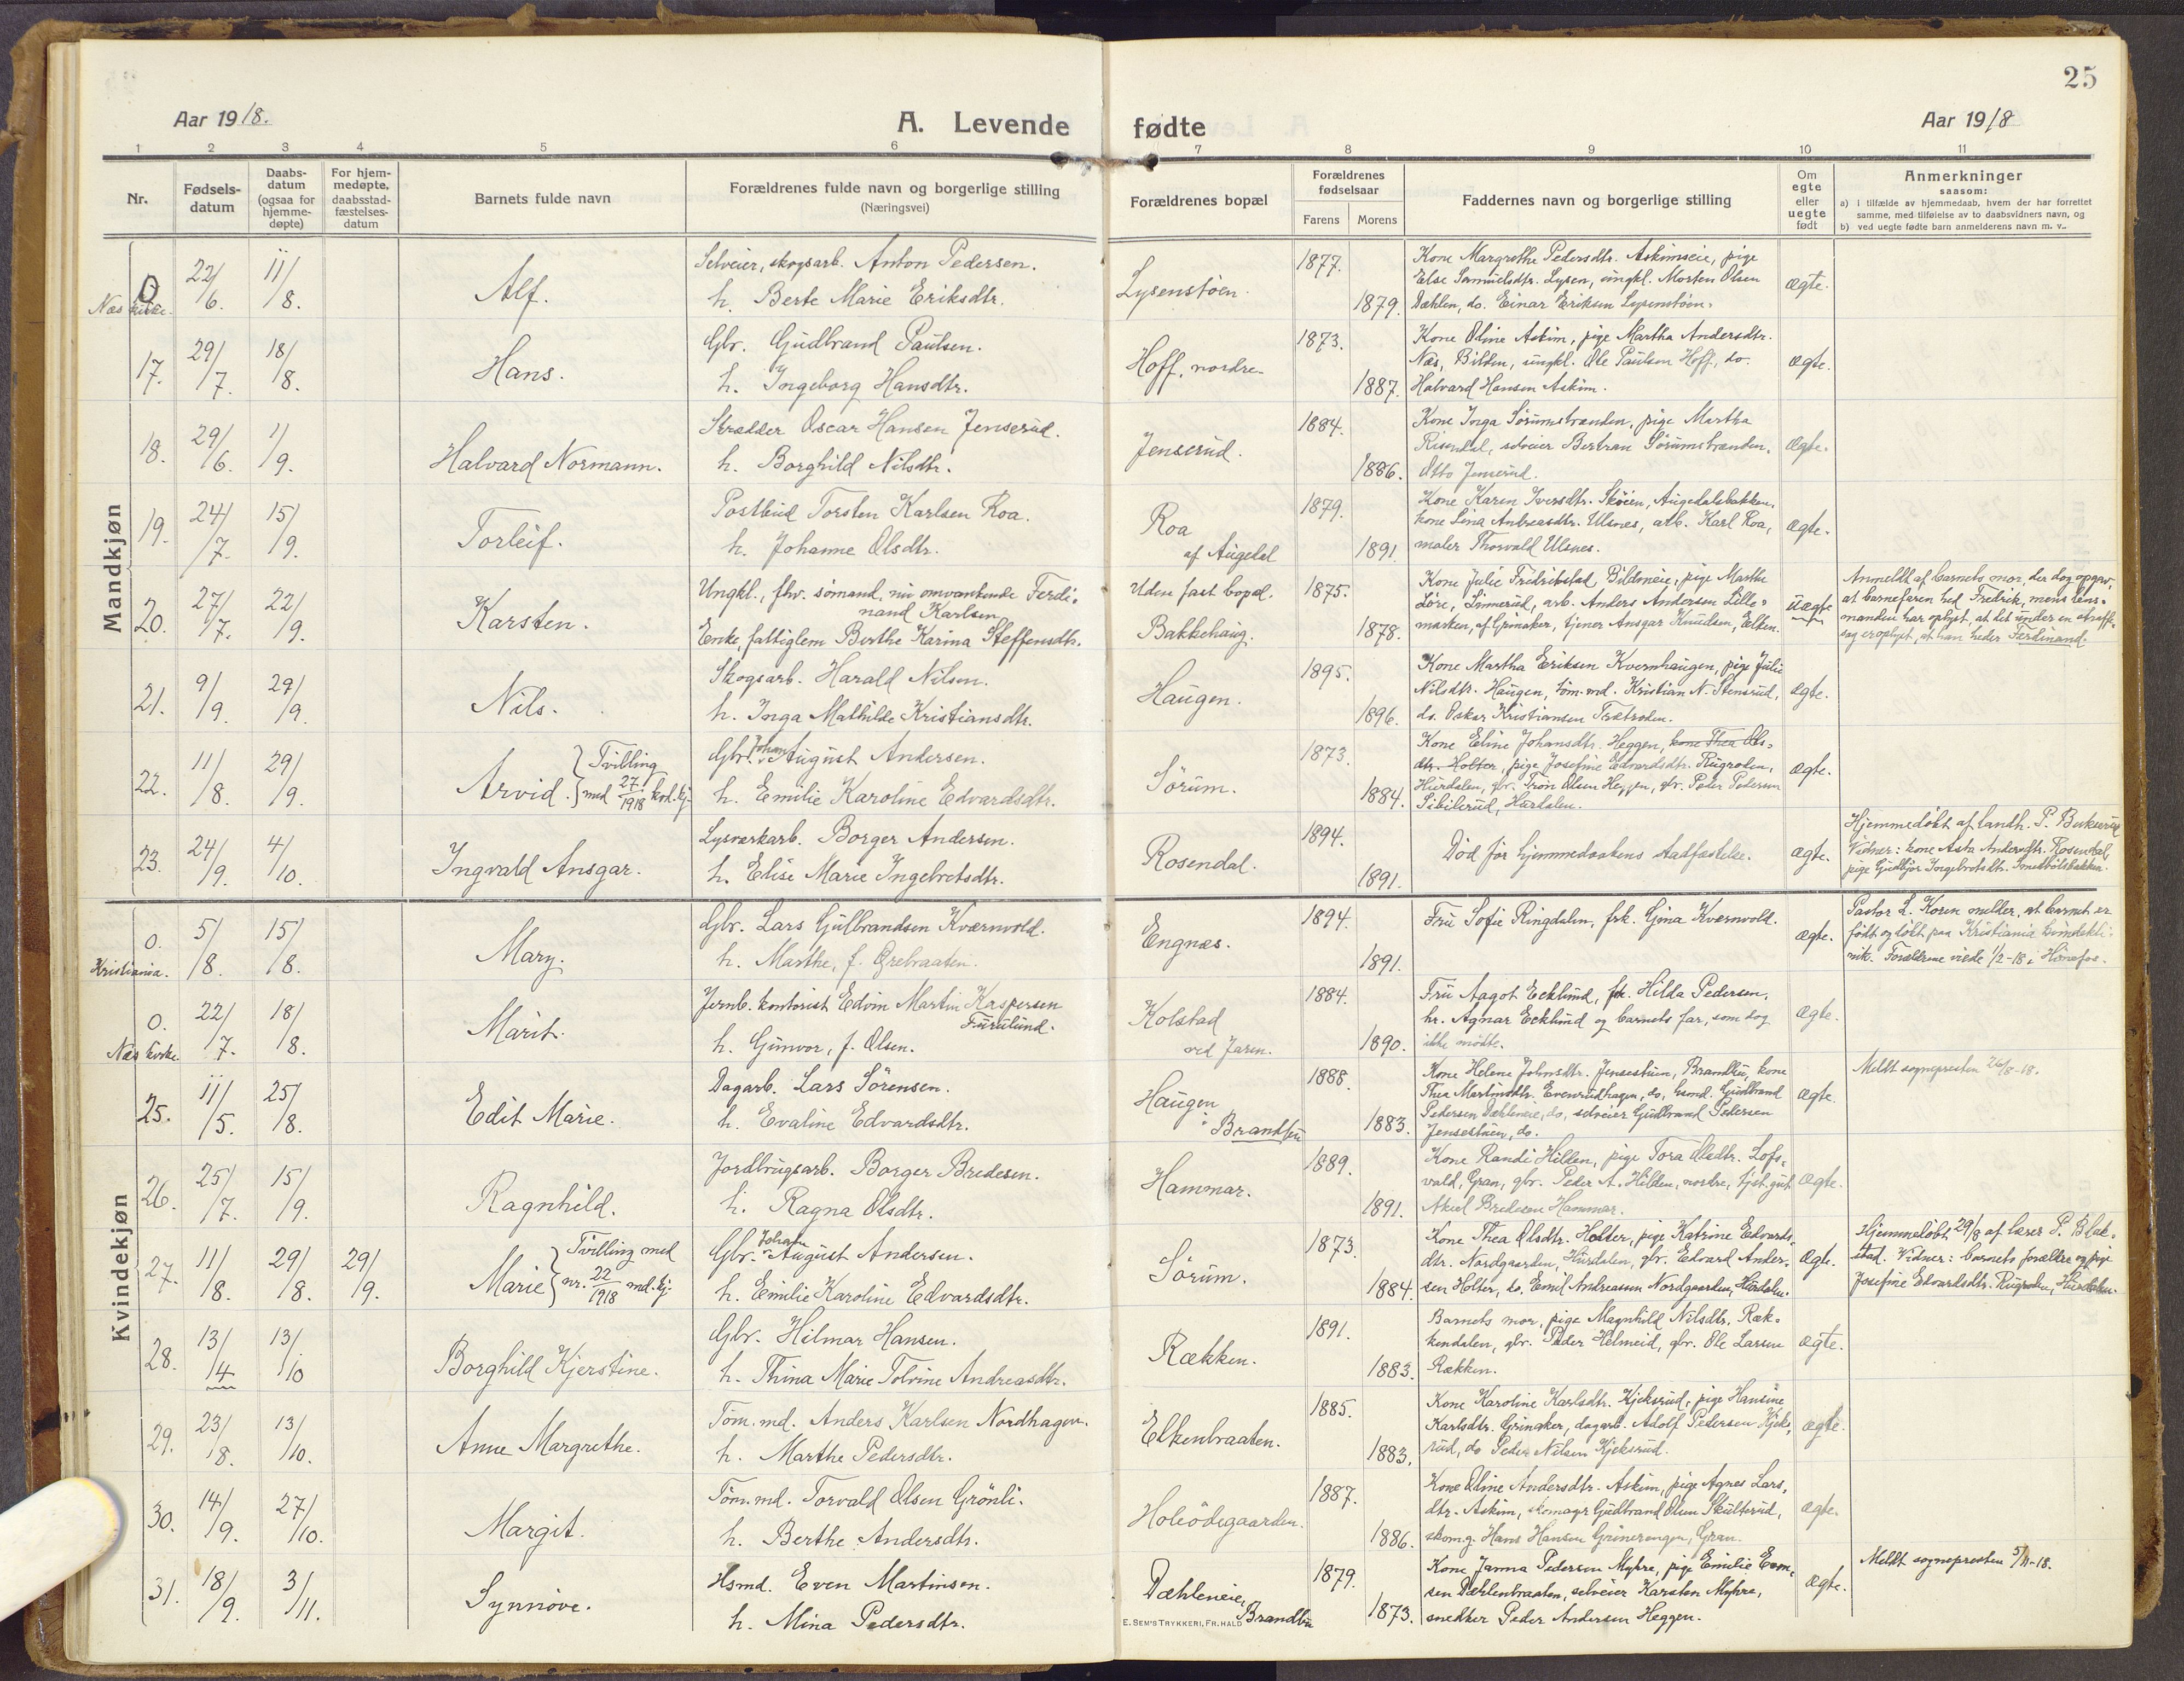 25
Aar 1918.
A. Levende fødte
Aar 1918
1 2 3 4 5 6 7 8 9 10 11
Nr.
Fødsels-
datum
Daabs-
datum
(ogsaa for
hjemme-
døpte)
For hjem-
medøpte,
daabsstad-
fæstelses-
datum
Barnets fulde navn
Forældrenes fulde navn og borgerlige stilling
(Næringsvei)
Forældrenes bopæl
Forældrenes
fødselsaar
Farens Morens
Faddernes navn og borgerlige stilling
Om
egte
eller
uegte
født
Anmerkninger
saasom:
a) i tilfælde av hjemmedaab, hvem der har forrettet
samme, med tilføielse av to daabsvidners navn, og
b) ved uegte fødte barn anmelderens navn m. v..
Mandkjøn
0 Næs kirke. 22/6. 11/8. Alf.
Selveier, skogsarb. Anton Pedersen.
h. Berte Marie Eriksdtr.
Lysenstøen. 1877. 1879.
Kone Margrethe Pedersdtr. Askimseie, pige
Else Samuelsdtr. Lysen, ungkl. Morten Olsen
Dæhlen, do. Einar Eriksen Lysenstøen.
ægte.
17. 29/7. 18/8. Hans.
Gbr. Gudbrand Paulsen.
h. Ingeborg Hansdtr.
Hoff, nordre 1873. 1887.
Kone Oline Askim, pige Martha Andersdtr.
Næs, Bilden, ungkl. Ole Paulsen Hoff, do.
Halvard Hansen Askim.
ægte.
18. 29/6. 1/9. Halvard Normann.
Skrædder Oscar Hansen Jenserud.
h. Borghild Nilsdtr.
Jenserud. 1884. 1886.
Kone Inga Sørumstranden, pige Martha
Risendal, selveier Bertran Sørumstranden.
Otto Jenserud.
ægte.
19. 24/7. 15/9. Torleif.
Postbud Torsten Karlsen Roa.
h. Johanne Olsdtr.
Roa
af Augedal 1879. 1891
Kone Karen Iversdtr. Skøien, Augedalsbakken,
kone Lina Andreasdtr. Ulsnes, arb. Karl Roa,
maler Thorvald Ulsnes.
ægte.
20. 27/7. 22/9. Karsten.
Ungkl., fhv. sømand, nu omvankende Ferdi-
nand Karlsen
Enke, fattiglem Berthe Karina Steffensdtr.
Uden fast bopæl.
Bakkehaug. 1875. 1878.
Kone Julie Fredrikstad, Bildeneie, pige Marthe
Løre, Linnerud, arb. Anders Andersen Lille-
marken, af Grinaker, tjener Ansgar Knudsen, Elken.
uægte
Anmeldt af barnets mor, der dog opgav,
at barnefaren hed Fredrik, mens lens-
manden har oplyst, at det under en straffe-
sag er oplyst, at han heder Ferdinand.
21. 9/9. 29/9. Nils.
Skogsarb. Harald Nilsen.
h. Inga Mathilde Kristiansdtr.
Haugen. 1895. 1896.
Kone Martha Eriksen Kvernhaugen, pige Julie
Nilsdtr. Haugen, tøm.md. Kristian N. Stensrud,
do. Oskar Kristiansen Trætroden.
ægte.
22. 11/8. 29/9. Arvid. Tvilling
med 27/1918 kvd.kj.
Gbr. Johan August Andersen.
h. Emilie Karoline Edvardsdtr.
Sørum. 1873. 1884.
Kone Eline Johansdtr. Heggen, kone Thea Ols-
dtr. Holter, pige Josefine Edvardsdtr. Rugroden,
Hurdalen, gbr. Tron Olsen Heggen, gbr. Peder Pedersen
Sibilerud, Hurdalen.
ægte.
23. 24/9. 4/10. Ingvald Ansgar.
Lysverkarb. Borger Andersen.
h. Elise Marie Ingebretsdtr.
Rosendal. 1894. 1891.
Død før hjemmedaabens stadfæstelse.
ægte.
Hjemmedøbt af landh. P. Bukserud
Vidner: kone Asta Andersdtr. Rosendal,
pige Gudbjør Ingebretsdtr. Smedbølsbakken.
Kvindekjøn
0. Kristiania. 5/8. 15/8. Mary.
Gbr. Lars Gulbrandsen Kværnvold.
h. Marthe, f. Ørebraaten.
Engnæs. 1894. 1891.
Fru Sofie Ringdalen, frk. Gina Kværnvold.
ægte.
Pastor L. Koren melder, at barnet er
født og døbt paa Kristiania kvindekli-
nik. Forældrene viede 1/2-18, Hønefos.
0. Næs kirke 22/7. 18/8. Marit.
Jernb. kontorist Edvin Martin Kaspersen
Furulund.
h. Gunvor, f. Olsen.
Kolstad
ved Jaren. 1884. 1890.
Fru Aagot Ecklund, frk. Hilda Pedersen,
hr. Agnar Ecklund og barnets far, som dog
ikke mødte.
ægte.
25. 11/5. 25/8. Edit Marie.
Dagarb. Lars Sørensen.
h. Evaline Edvardsdtr.
Haugen
i Brandbu 1888. 1883.
Kone Helene Johnsdtr. Jensestuen, Brandbu, kone
Thea Martinsdtr. Evenrudhagen, do, husmd. Gudbrand
Pedersen Dæhleneie, do, selveier Gudbrand Pedersen
Jensestuen, do.
ægte.
Meldt sognepresten 26/8-18.
26. 25/7. 15/9. Ragnhild.
Jordbrugsarb. Borger Bredesen.
h. Ragna Olsdtr.
Hammar. 1889. 1891.
Kone Randi Hilden, pige Tora Olsdtr. Lofs-
vald, Gran, gbr. Peder A. Hilden, nordre, tjst.gut
Aksel Bredesen Hammar.
ægte.
27. 11/8. 29/8. 29/9. Marie Tvilling med
nr. 22/1918 md.kj.
Gbr. Johan August Andersen.
h. Emilie Karoline Edvardsdtr.
Sørum. 1873. 1884.
Kone Thea Olsdtr. Holter, pige Katrine Edvards-
dtr. Nordgaarden, Hurdalen, gbr. Edvard Ander-
sen Holter, do. Emil Andreassen Nordgaarden, Hurdalen.
ægte.
Hjemmedøbt 29/8 af lærer P. Blak-
stad. Vidner: barnets forældre og pige
Josefine Edvardsdtr. Rugroden, Hurdalen.
28. 13/4 13/10 Borghild Kjerstine.
Gbr. Hilmar Hansen.
h. Thina Marie Tolvine Andreasdtr.
Rækken. 1891. 1883.
Barnets mor, pige Magnhild Nilsdtr. Ræk-
kendalen, gbr. Peder Helmeid, gbr. Ole Larsen
Rækken.
ægte.
29. 23/8. 13/10. Anne Margrethe.
Tøm.md. Anders Karlsen Nordhagen.
h. Marthe Pedersdtr.
Elkenbraaten. 1885. 1883.
Kone Karoline Karlsdtr. Kjeksrud, pige Hansine
Karlsdtr. Grinaker, dagarb. Adolf Pedersen Kjeks-
rud, do Peder Nilsen Kjeksrud.
ægte.
30. 14/9. 27/10. Margit.
Tøm.md. Torvald Olsen Grønli.
h. Berthe Andersdtr.
Holeødegaarden. 1887. 1886.
Kone Oline Andersdtr. Askim, pige Agnes Lars-
dtr. Askim, skomager Gudbrand Olsen Skulterud,
skomg. Hans Hansen Grinerengen, Gran.
ægte.
31. 18/9. 3/11. Synnøve.
Hsmd. Even Martinsen.
h. Mina Pedersdtr.
Dæhleneie,
Brandbu 1879. 1873.
Kone Janna Pedersen Myhre, pige Emilie Even-
sen Dæhlenbraaten, selveier Karsten Myhre,
snedker Peder Andersen Heggen.
ægte.
Meldt sognepresten 5/11-18.
E. SEM'S TRYKKERI, FR.HALD